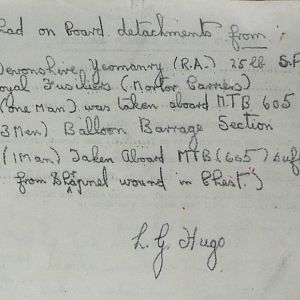 had on Board detachments from
Devonshire Yeomanry (R.A.) 25 lb S.P
Royal Fusiliers (Mortar Carriers)
(one Man) was taken aboard MTB 605
3 Men) Balloon Barrage Section
(1 Man) Taken Aboard MTB (665) suf
from Shrapnel wound in Chest.)
L. G. Hugo